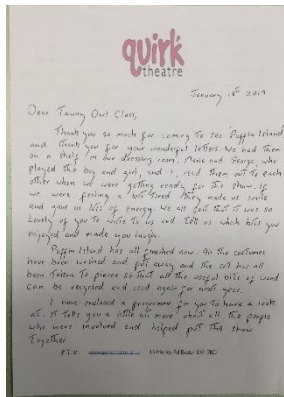 quirk
theatre
January 18th 2019
Dear Tawny Owl Class,
Thank you so much for coming to see Puffin Island,
and thank you for your wonderful letters. We had them
on a shelf in our dressing room. Marie and George, who
played the boy and girl, and I, read them out to each
other when we were getting ready for the show. If
we were feeling a bit tired they made us smile
and gave us lots of energy. We all felt that it was so
lovely of you to write to us and tell us which bits you
enjoyed and made you laugh.
Puffin Island has all finished now. All the costumes
have been washed and put away and the set has all
been taken to pieces so that all the useful bits of wood
can be recycled and used again for next year.
I have enclosed a programme for you to have a look
at. It tells you a little bit more about all the people
who were involved and helped put the show
together.
P.T.O.